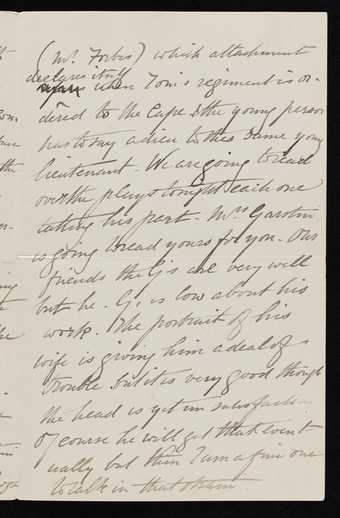 (Mr. Forbes) which attachment
declares itself
when Tom's regiment is or-
dered to the Cape & the young person
has to say adieu to this same young
lieutenant. We are going to read
over the plays tonight each one
taking his part. Mrs Garstin
is going to read yours for you. Our
friends the G's are very well
but he. G. is low about his
work. The portrait of his
wife is giving him a deal of
trouble but it is very good though
the head is yet un
Of course he will get that event-
ually but then I am a fine one
to talk in that strain.